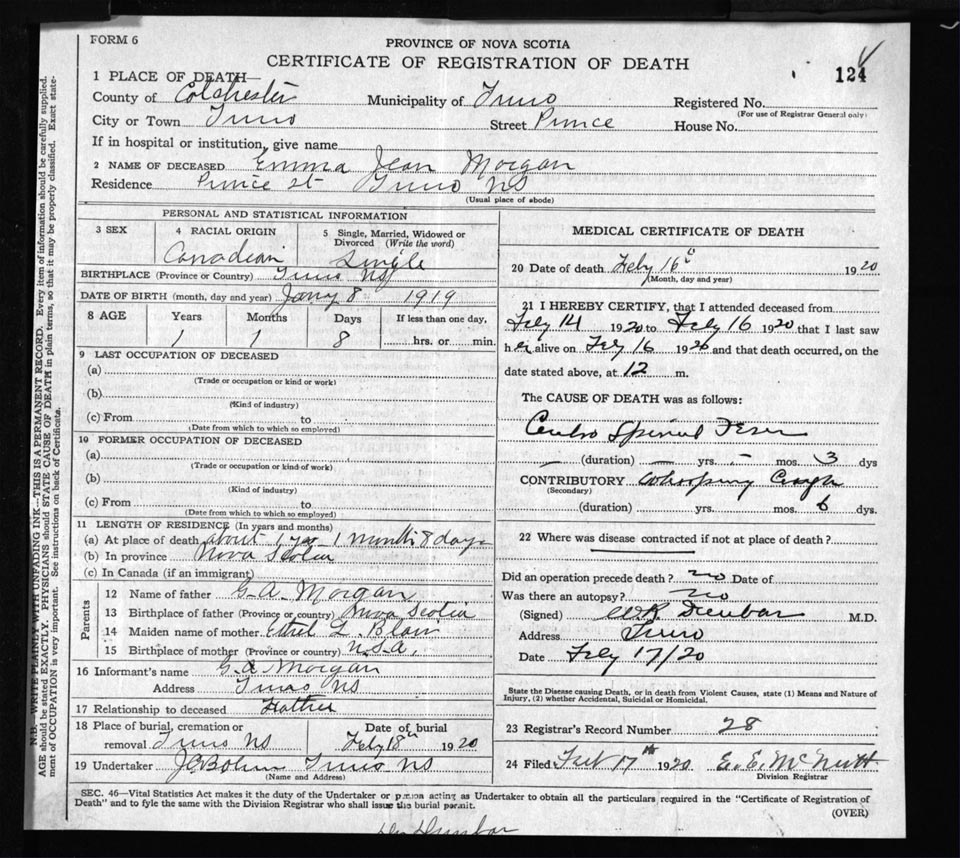 FORM 6
PROVINCE OF NOVA SCOTIA
CERTIFICATE OF REGISTRATION OF DEATH
124
1 PLACE OF DEATH—
County of Colchester Municipality of Truro Registered No.
(For use of Registrar General only)
City or Town Truro Street Prince House No.
If in hospital or institution, give name
2 NAME OF DECEASED Emma Jean Morgan
Residence Prince St Truro NS
(Usual place of abode)
PERSONAL AND STATISTICAL INFORMATION
3 SEX 4 RACIAL ORIGIN 5 Single, Married, Widowed or Divorced (Write the word)
Canadian Single
BIRTHPLACE (Province or Country) Truro NS
DATE OF BIRTH (month, day and year) Jany 8 1919
8 AGE Years Months Days If less than one day,
1 1 8 hrs. or min.
9 LAST OCCUPATION OF DECEASED
(a)
(Trade or occupation or kind or work)
(b)
(Kind of industry)
(c) From to
(Date from which to which so employed)
10 FORMER OCCUPATION OF DECEASED
(a)
(Trade or occupation or kind of work)
(b)
(Kind of industry)
(c) From to
(Date from which to which so employed)
11 LENGTH OF RESIDENCE (In years and months)
(a) At place of death about 1 year 1 month 8 days
(b) In province Nova Scotia
(c) In Canada (if an immigrant)
Parents
12 Name of father G. A. Morgan
13 Birthplace of father (Province or country) Nova Scotia
14 Maiden name of mother Ethel L. Blair
15 Birthplace of mother (Province or country) U.S.A.
16 Informant's name G. A. Morgan
Address Truro NS
17 Relationship to deceased Father
18 Place of burial, cremation or Date of burial
removal Truro NS Feby 18th 1920
19 Undertaker Truro NS
(Name and Address)
MEDICAL CERTIFICATE OF DEATH
20 Date of death Feby 16 1920
(Month, day and year)
21 I HEREBY CERTIFY, that I attended deceased from
Feby 14 1920 to Feby 16 1920 that I last saw
her alive on Feby 16 1920 and that death occurred, on the
date stated above, at 12 m.
The CAUSE OF DEATH was as follows:
Cerebro Spinal Fever
(duration) yrs. mos. 3 dys
CONTRIBUTORY Whooping Cough
(Secondary)
(duration) yrs. mos. 6 dys.
22 Where was disease contracted if not at place of death?
Did an operation precede death? no Date of
Was there an autopsy? no
(Signed) W.R. Dunbar M.D.
Address Truro
Date Feby 17/20
State the Disease causing Death, or in death from Violent Causes, state (1) Means and Nature of
Injury, (2) whether Accidental, Suicidal or Homicidal.
23 Registrar's Record Number 28
24 Filed 17th 1920 E. E. McNutt
Division Registrar
SEC. 46—Vital Statistics Act makes it the duty of the Undertaker or person acting as Undertaker to obtain all the particulars required in the "Certificate of Registration of
Death" and to fyle the same with the Division Registrar who shall issue the burial permit.
(OVER)
Dr Dunbar
N.B.—WRITE PLAINLY WITH UNFADING INK—THIS IS A PERMANENT RECORD. Every item of information should be carefully supplied.
AGE should be stated EXACTLY. PHYSICIANS should STATE CAUSE OF DEATH in plain terms, so that it may be properly classified. Exact state-
ment of OCCUPATION is very important. See instructions on back of Certificate.